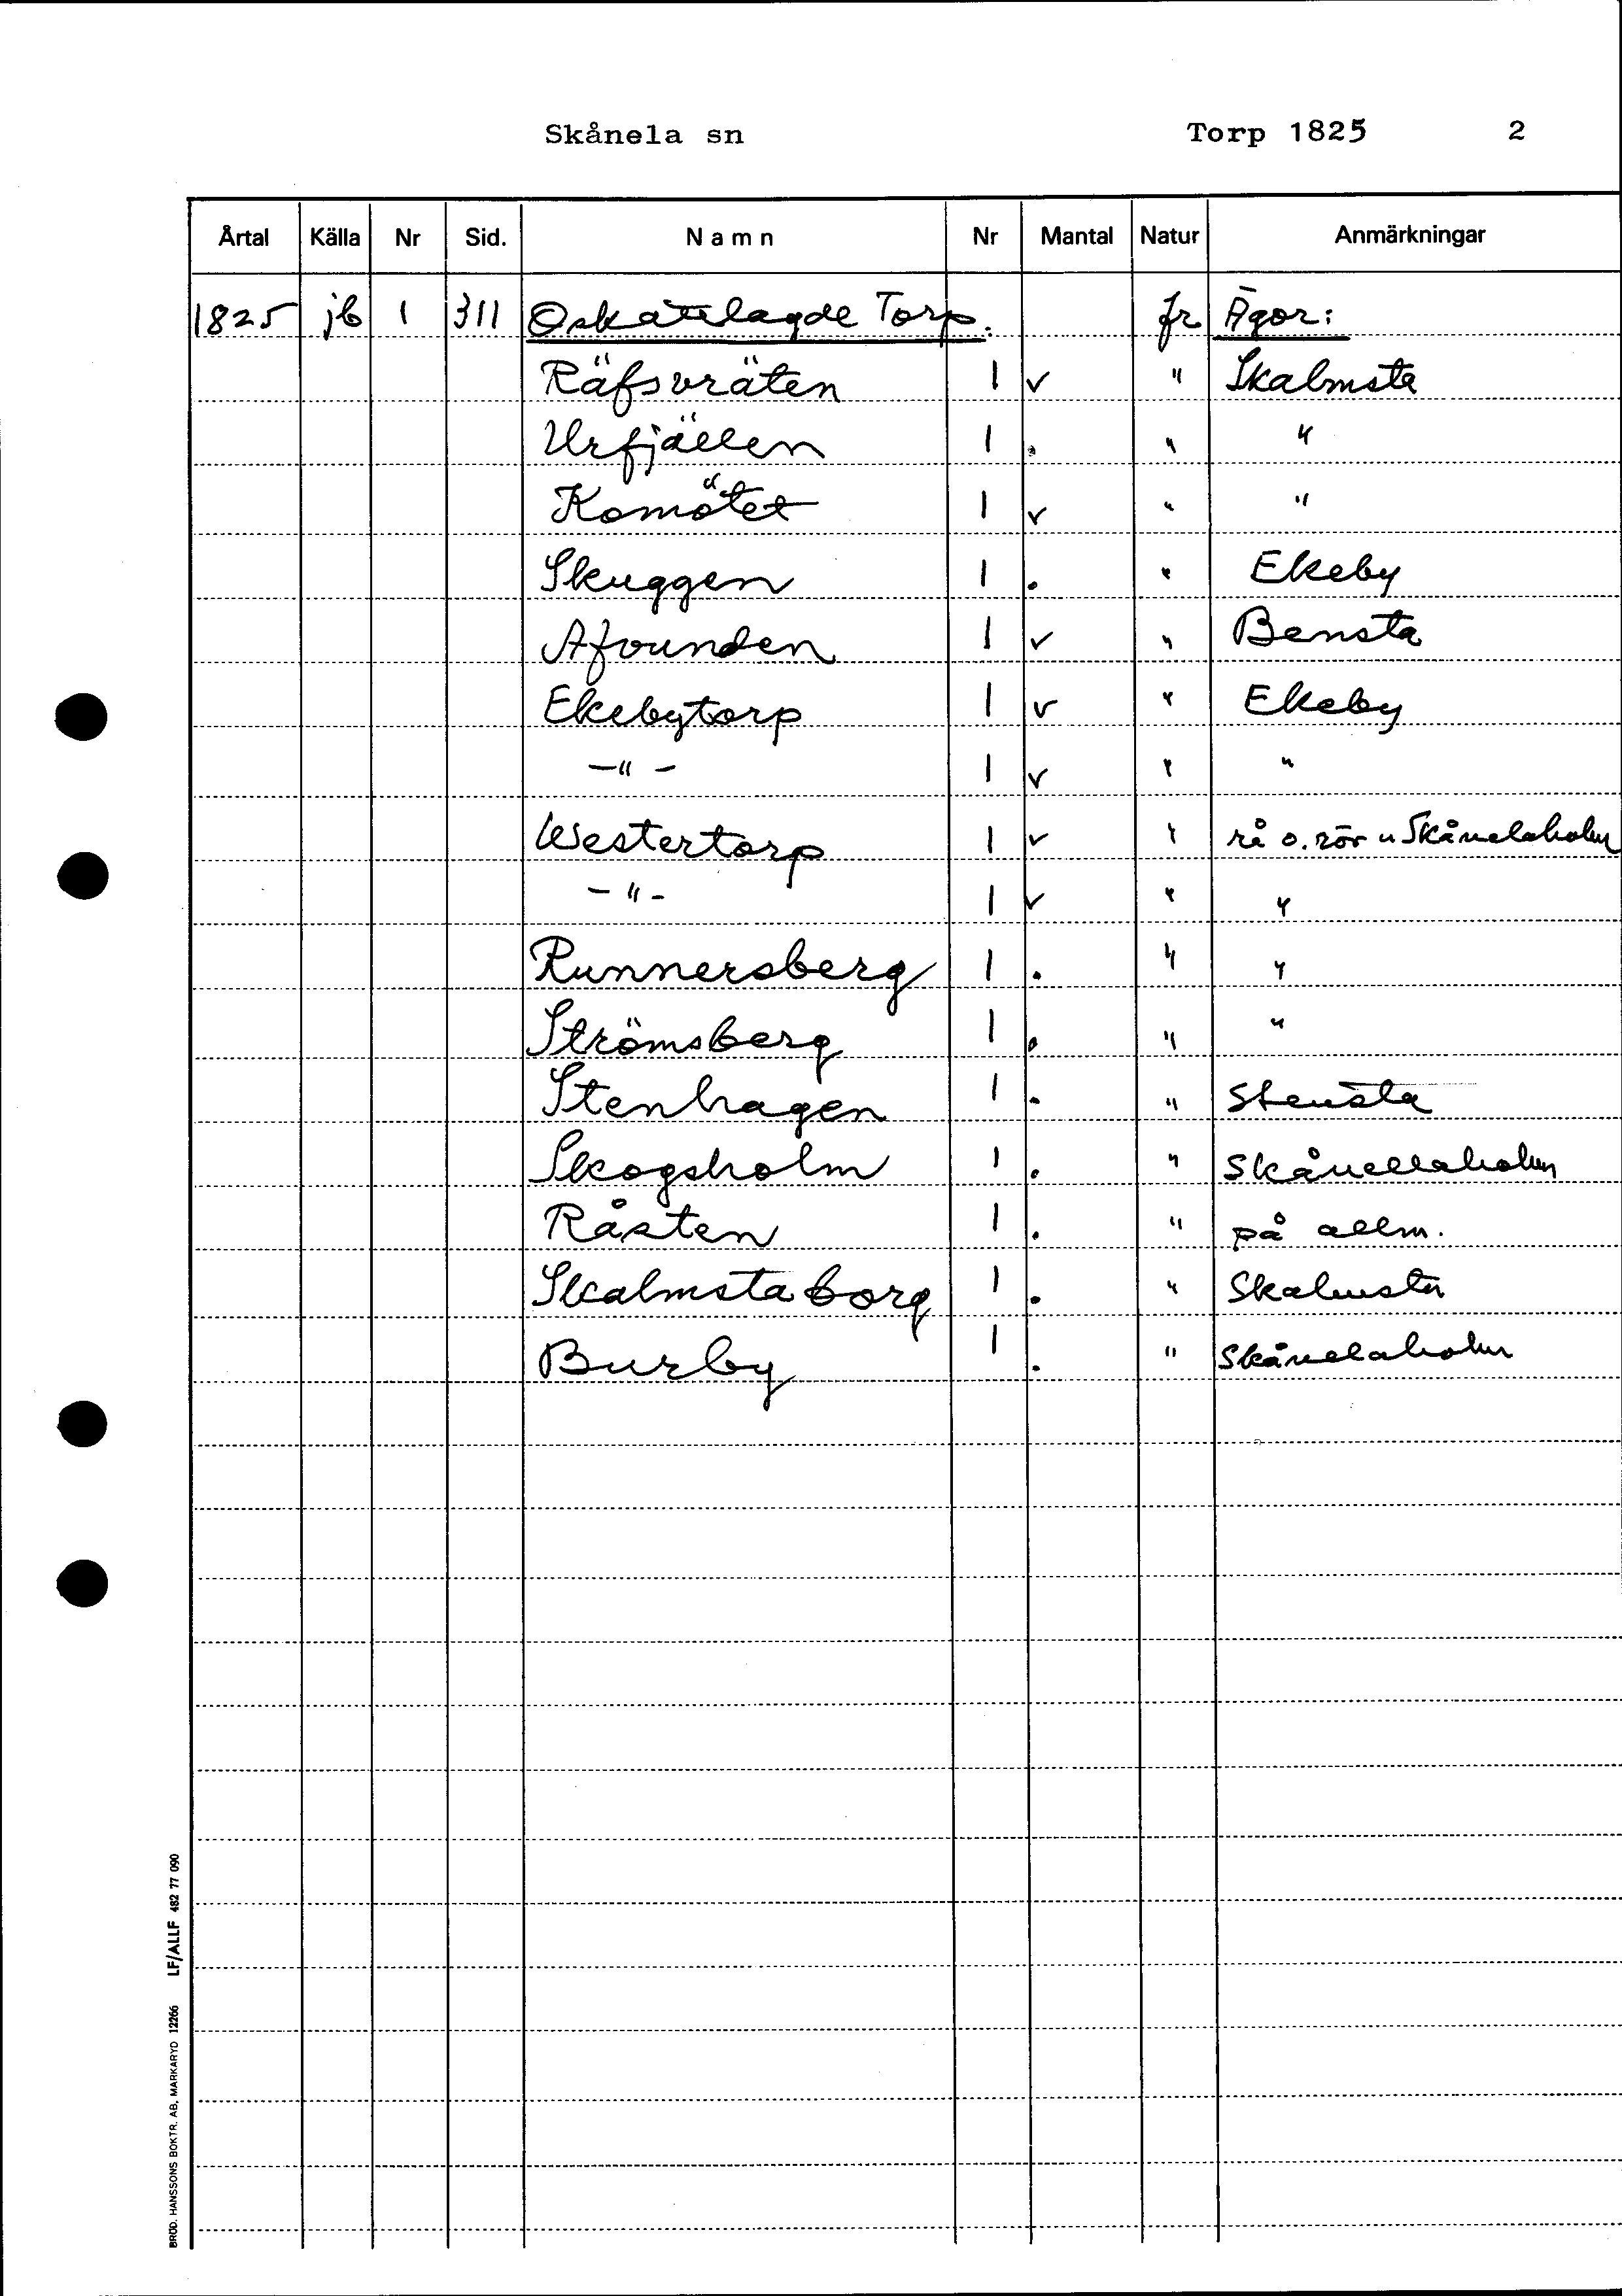 Skånela sn Torp 1825 2
Årtal Källa Nr Sid. Namn Nr Mantal Natur Anmärkningar
1825 jb 1 311 Oskattlagde Torp. fr Ägor:
Räfsvräten 1 v " Skalmsta
Urfjällen 1 . " "
Komötet 1 v " "
Skuggen 1 . " Ekeby
Afvunden 1 v " Bensta
Ekebytorp 1 v " Ekeby
-"- 1 v " "
Westertorp 1 v " rå o. rör u Skånelaholm
-"- 1 v " "
Runnersberg 1 . " "
Strömsberg 1 . " "
Stenhagen 1 . " Stensta
Skogsholm 1 . " Skånellaholm
Råsten 1 . " på allm.
Skalmstaborg 1 . " Skalmsta
Burby 1 . " Skånelaholm
BRÖD. HANSSONS BOKTR. AB, MARKARYD 12266 LF/ALLF 482 77 090